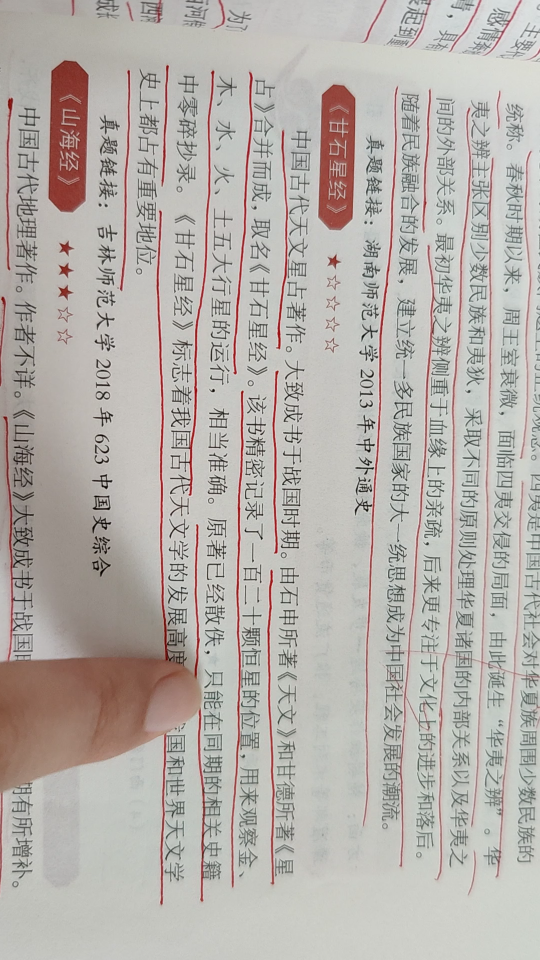 统称。春秋时期以来，周王室衰微，面临四夷交侵的局面，由此诞生“华夷之辨”。华
夷之辨主张区别少数民族和夷狄，采取不同的原则处理华夏诸国的内部关系以及华夷之
间的外部关系。最初华夷之辨侧重于血缘上的亲疏，后来更专注于文化上的进步和落后。
随着民族融合的发展，建立统一多民族国家的大一统思想成为中国社会发展的潮流。
真题链接：湖南师范大学 2013 年中外通史
《甘石星经》 ★☆☆☆☆
中国古代天文星占著作。大致成书于战国时期。由石申所著《天文》和甘德所著《星
占》合并而成，取名《甘石星经》。该书精密记录了一百二十颗恒星的位置，用来观察金、
木、水、火、土五大行星的运行，相当准确。原著已经散佚，只能在同期的相关史籍
中零碎抄录。《甘石星经》标志着我国古代天文学的发展高度 国和世界天文学
史上都占有重要地位。
真题链接：吉林师范大学 2018 年 623 中国史综合
《山海经》 ★★★☆☆
中国古代地理著作。作者不详。《山海经》大致成书于战国 期有所增补。